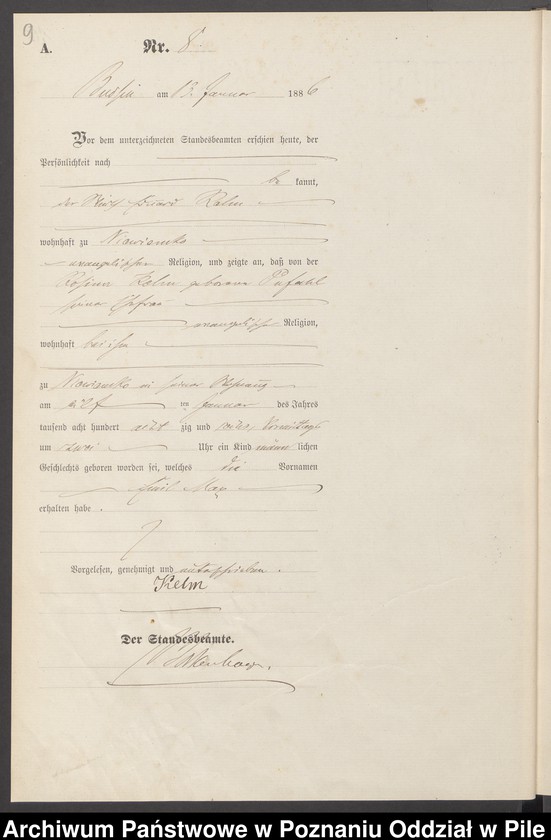 9
A. Nr. 8
am 13. Januar 1886
Vor dem unterzeichneten Standesbeamten erschien heute, der
Persönlichkeit nach
be kannt,
der Kelm
wohnhaft zu
evangelischer Religion, und zeigte an, daß von der
Rosine Kelm geborene Pufahl
seiner Ehefrau
evangelischer Religion,
wohnhaft bei ihm
zu in seiner Behausung
am elf ten Januar des Jahres
tausend acht hundert acht zig und sechs Vormittags
um zwei Uhr ein Kind männ lichen
Geschlechts geboren worden sei, welches die Vornamen
Emil Max
erhalten habe .
Vorgelesen, genehmigt und unterschrieben .
Kelm
Der Standesbeamte.
Archiwum Państwowe w Poznaniu Oddział w Pile